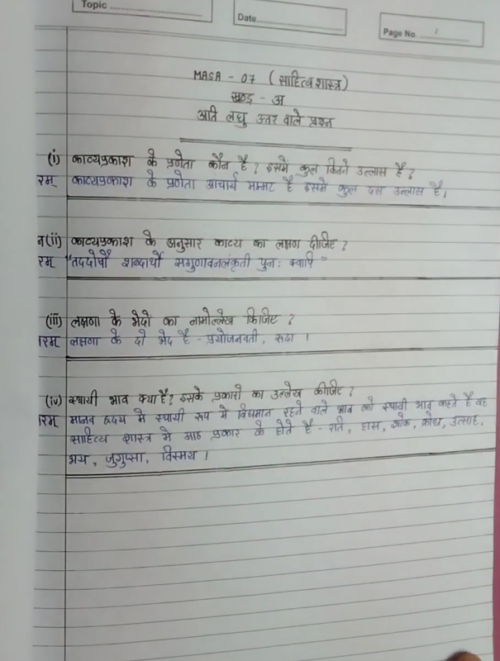 Topic
Date
Page No. 1
MASA - 07 ( साहित्य शास्त्र )
खण्ड - अ
अति लघु उत्तर वाले प्रश्न
(i) काव्यप्रकाश के प्रणेता कौन है ? इसमें कुल कितने उल्लास है ?
रम् काव्यप्रकाश के प्रणेता आचार्य मम्मट है इसमें कुल दस उल्लास है।
न(ii) काव्यप्रकाश के अनुसार काव्य का लक्षण दीजिए ?
रम् "तददोषौ शब्दार्थौ सगुणावनलंकृती पुनः क्वापि"
(iii) लक्षणा के भेदो का नामोल्लेख किजिए ?
रम् लक्षणा के दो भेद है - प्रयोजनवती, रूढा ।
(iv) स्थायी भाव क्या है? इसके प्रकारो का उल्लेख कीजिए ?
रम् मानव हृदय मे स्थायी रूप मे विद्यमान रहने वाले भाव को स्थायी भाव कहते है यह
साहित्य शास्त्र मे आठ प्रकार के होते है - रति, हास, शोक, क्रोध, उत्साह,
भय, जुगुप्सा, विस्मय ।